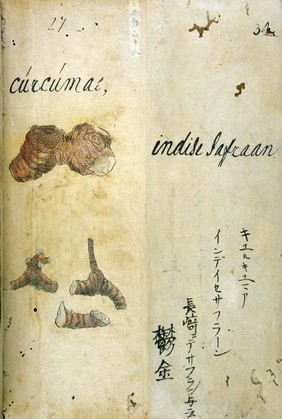 27
curcumae,
indise Saffraan
キユルキユニア
インデイセサフラーン
長崎ニテサフラン
鬱金